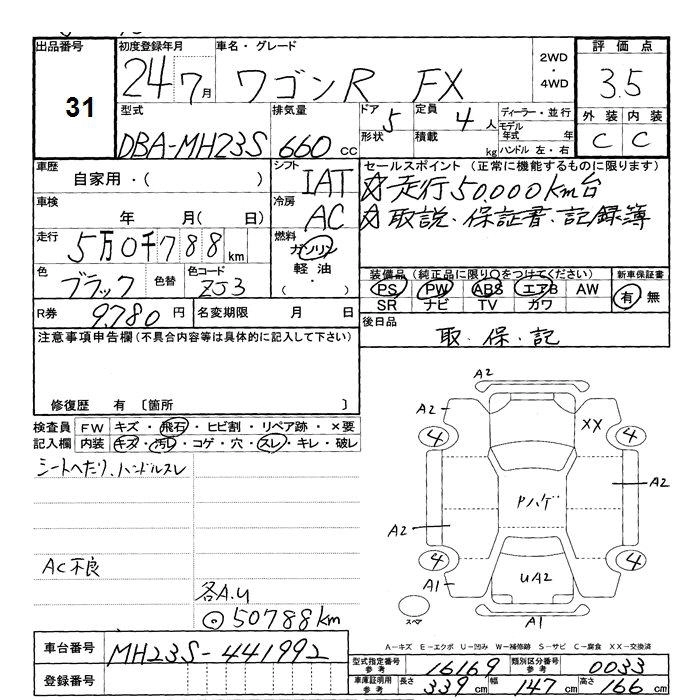 出品番号 初度登録年月 車名・グレード 評価点
31 24 7月 ワゴンR FX 2WD・4WD 3.5
型式 排気量 ドア 5 定員 4人 ディーラー・並行 外装 内装
DBA-MH23S 660cc 形状 積載 kg モデル年式 年 ハンドル 左・右 C C
車歴 シフト セールスポイント (正常に機能するものに限ります)
自家用・( ) IAT ☆走行50,000Km台
車検 冷房 ☆取説・保証書・記録簿
年 月( 日) AC
走行 5万0千788km 燃料 ガソリン
軽油
・( )
色 ブラック 色替 色コード ZJ3
装備品 (純正品に限り○をつけてください) 新車保証書
PS PW ABS エアB AW 有・無
SR ナビ TV カワ
R券 9,780円 名変期限 月 日 後日品
注意事項申告欄(不具合内容等は具体的に記入して下さい) 取・保・記
修復歴 有 〔箇所 〕
検査員 FW キズ・飛石・ヒビ割・リペア跡・×要
記入欄 内装 キズ・汚レ・コゲ・穴・スレ・キレ・破レ
シートへたり、ハンドルスレ
AC不良
各A.U
◎50788km
A2
A2 XX
4 4
A2
Pハゲ
A2
4 4
A1 UA2
スペア
A1
A-キズ E-エクボ U-凹み W-補修跡 S-サビ C-腐食 XX-交換済
車台番号 MH23S-441992
登録番号
型式指定番号 参考 16169 類別区分番号 参考 0033
車庫証明用 参考 長さ 339cm 幅 147cm 高さ 166cm